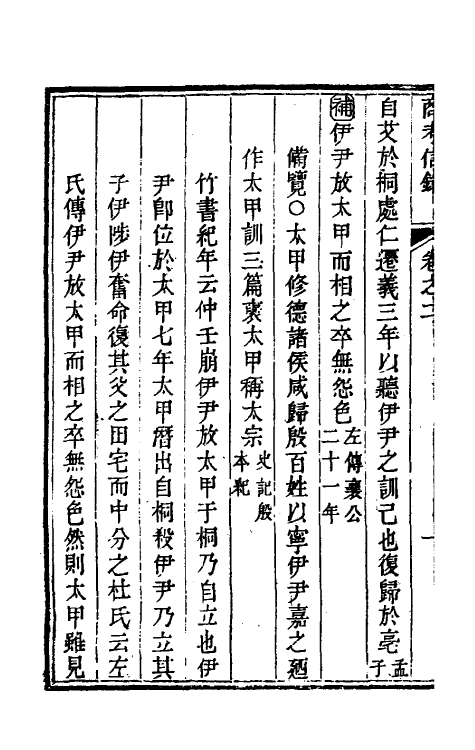 商考信錄 卷之二
自艾於桐處仁遷義三年以聽伊尹之訓己也復歸於亳孟子
補伊尹放太甲而相之卒無怨色左傳襄公二十一年
備覽○太甲修德諸侯咸歸殷百姓以寧伊尹嘉之廼
作太甲訓三篇襃太甲稱太宗史記殷本紀
竹書紀年云仲壬崩伊尹放太甲于桐乃自立也伊
尹卽位於太甲七年太甲潛出自桐殺伊尹乃立其
子伊陟伊奮命復其父之田宅而中分之杜氏云左
氏傳伊尹放太甲而相之卒無怨色然則太甲雖見